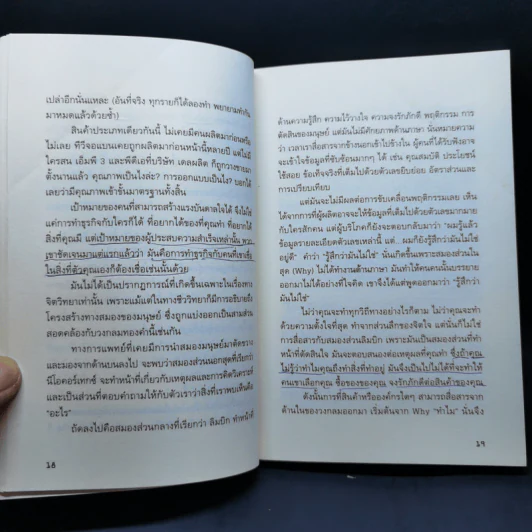 เปล่าอีกนั่นแหละ (อันที่จริง ทุกรายก็ได้ลองทำ พยายามทำกัน
มาหมดแล้วด้วยซ้ำ)
สินค้าประเภทเดียวกันนี้ ไม่เคยมีคนผลิตมาก่อนหรือ
ไม่เลย ทีวีจอแบนเคยถูกผลิตมาก่อนหน้านี้หลายปี แต่ไม่มี
ใครสน เอ็มพี 3 และพีดีเอที่บริษัท เดลผลิต ก็ถูกวางขายมา
ตั้งนานแล้ว คุณภาพเป็นไงล่ะ? การออกแบบเป็นไง? บอกได้
เลยว่ามีคุณภาพเข้าขั้นมาตรฐานทั้งสิ้น
เป้าหมายของคนที่สามารถสร้างแรงบันดาลใจได้ จึงไม่ใช่
แค่การทำธุรกิจกับใครก็ได้ ที่อยากได้ของที่คุณทำ ที่อยากได้
สิ่งที่คุณมี แต่เป้าหมายของผู้ประสบความสำเร็จเหล่านั้น พวก
เขาชัดเจนมาแต่แรกแล้วว่า มันคือการทำธุรกิจกับคนที่เขาเชื่อ
ในสิ่งที่ตัวคุณเองก็ต้องเชื่อเช่นนั้นด้วย
มันไม่ได้เป็นปรากฏการณ์ที่เกิดขึ้นเฉพาะในเรื่องทาง
จิตวิทยาเท่านั้น เพราะแม้แต่ในทางชีววิทยาก็มีการอธิบายถึง
โครงสร้างทางสมองของมนุษย์ ซึ่งถูกแบ่งออกเป็นสามส่วน
สอดคล้องกับวงกลมทองคำนี้เช่นกัน
ทางการแพทย์ที่เคยมีการนำสมองมนุษย์มาตัดขวาง
และมองจากด้านบนลงไป จะพบว่าสมองส่วนนอกสุดที่เรียกว่า
นีโอคอร์เทกซ์ จะทำหน้าที่เกี่ยวกับเหตุผลและการคิดวิเคราะห์
และเป็นส่วนที่ตอบคำถามให้กับตัวเราว่าสิ่งที่เราพบเห็นคือ
"อะไร"
ถัดลงไปคือสมองส่วนกลางที่เรียกว่า ลิมบิก ทำหน้าที่
18
ด้านความรู้สึก ความไว้วางใจ ความจงรักภักดี พฤติกรรม การ
ตัดสินของมนุษย์ แต่มันไม่มีศักยภาพด้านภาษา นั่นหมายความ
ว่า เวลาเราสื่อสารจากข้างนอกเข้าไปข้างใน ผู้คนที่ได้รับฟังอาจ
จะเข้าใจข้อมูลที่ซับซ้อนมากๆ ได้ เช่น คุณสมบัติ ประโยชน์
ใช้สอย ข้อเท็จจริงที่เต็มไปด้วยตัวเลขยิบย่อย อัตราส่วนและ
การเปรียบเทียบ
แต่มันจะไม่มีผลต่อการขับเคลื่อนพฤติกรรมเลย เห็น
ได้จากการที่ผู้ผลิตอาจจะให้ข้อมูลที่เต็มไปด้วยตัวเลขมากมาย
กับใครสักคน แต่ผู้บริโภคก็ยังจะตอบกลับมาว่า "ผมรู้แล้ว
ข้อมูลรายละเอียดตัวเลขเหล่านี้ แต่... ผมก็ยังรู้สึกว่ามันไม่ใช่
อยู่ดี" คำว่า "รู้สึกว่ามันไม่ใช่" นั่นเกิดขึ้นเพราะสมองส่วนใน
สุด (Why) ไม่ได้ทำงานด้านภาษา มันทำให้คนคนนั้นบรรยาย
ออกมาไม่ได้อย่างที่ใจคิด เขาจึงได้แต่พูดออกมาว่า "รู้สึกว่า
มันไม่ใช่"
ไม่ว่าคุณจะทำทุกวิถีทางอย่างไรก็ตาม ไม่ว่าคุณจะทำ
ด้วยความตั้งใจที่สุด ทำจากส่วนลึกของจิตใจ แต่นั่นก็ไม่ใช่
การสื่อสารกับสมองส่วนลิมบิก เพราะมันเป็นสมองส่วนที่ทำ
หน้าที่ตัดสินใจ มันจะตอบสนองต่อเหตุผลที่คุณทำ ซึ่งถ้าคุณ
ไม่รู้ว่าทำไมคุณถึงทำสิ่งที่ทำอยู่ มันจึงเป็นไปไม่ได้ที่จะทำให้
คนเขาเลือกคุณ ซื้อของของคุณ จงรักภักดีต่อสินค้าของคุณ
ดังนั้นการที่สินค้าหรือองค์กรใดๆ สามารถสื่อสารจาก
ด้านในของวงกลมออกมา เริ่มต้นจาก Why "ทำไม" นั่นจึง
19